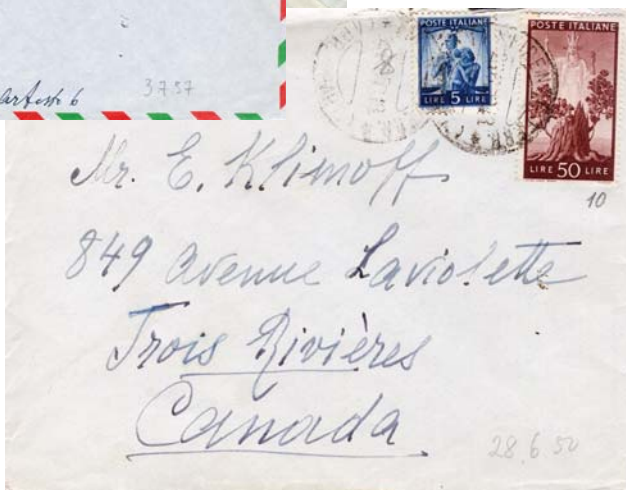 3757
6
POSTE ITALIANE
LIRE 5 LIRE
POSTE ITALIANE
LIRE 50 LIRE
10
Mr. E. Klimoff
849 Avenue Laviolette
Trois Rivières
Canada
28.6.50